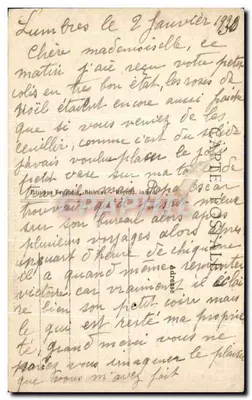 Lumbres le 2 Janvier 1930
Chère mademoiselle, ce
matin j'ai reçu votre petit
colis en tres bon état, les roses de
Noël étaient encore aussi fraiche
que si vous veniez de les
ceuillir, comme c'est du
savais vouhu placer le
petit vase sur ma
papa Oscar
trouvait
son bureau alors après
plusieurs voyages alors après
un quart d'heure de chiquenne
il a quand meme remporter
victoire car vraiment il
bien son petit coin mais
le qui est resté ma proprié
té, grand merci vous ne
pouvez vous imaginer le plaisir
que vous m'avez fait
CARTE POSTALE
Adresse